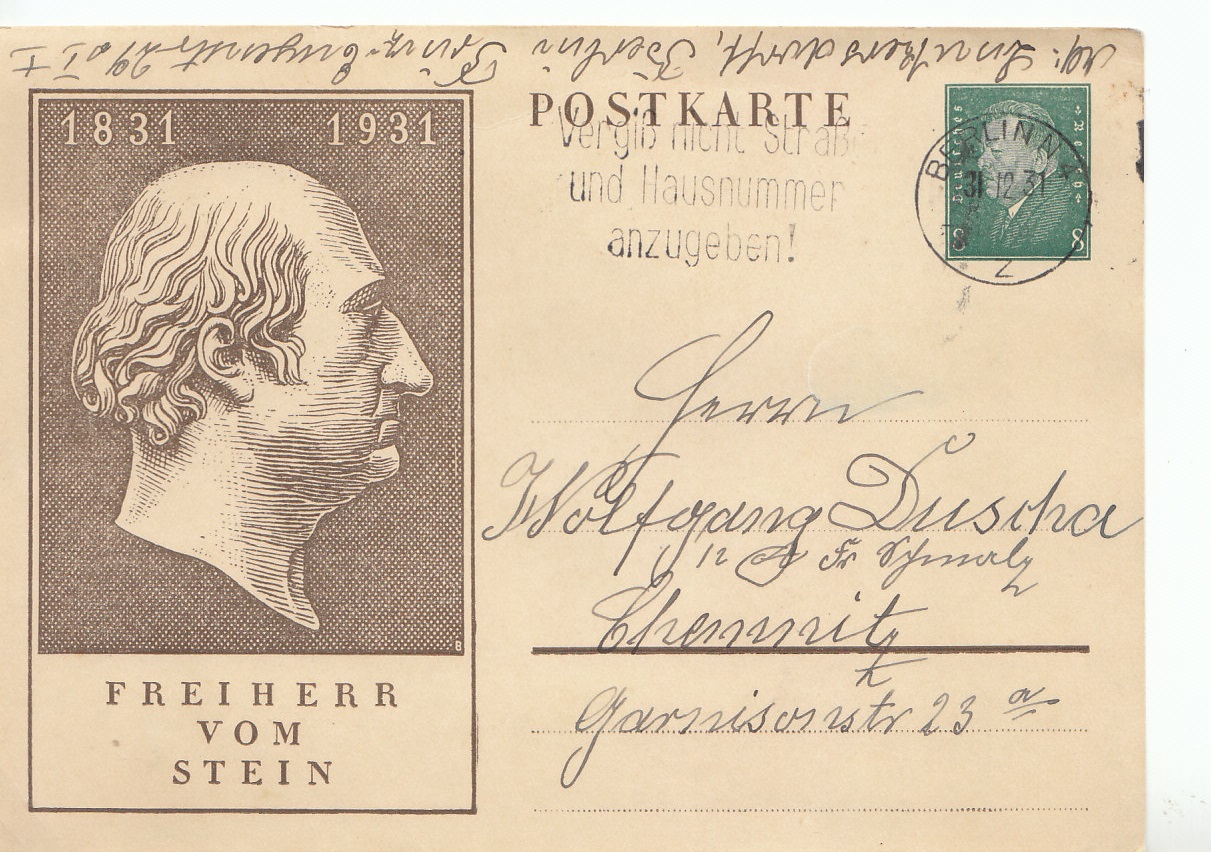 1831 1931
FREIHERR
VOM
STEIN
POSTKARTE
Vergiß nicht Straß
und Hausnummer
anzugeben!
Deutsches Reich
8 8
BERLIN N 4
31.12.31
Z
Herrn
Wolfgang Duscha
Fr Schmalz
Chemnitz
Garnisonstr 23 a
Berlin